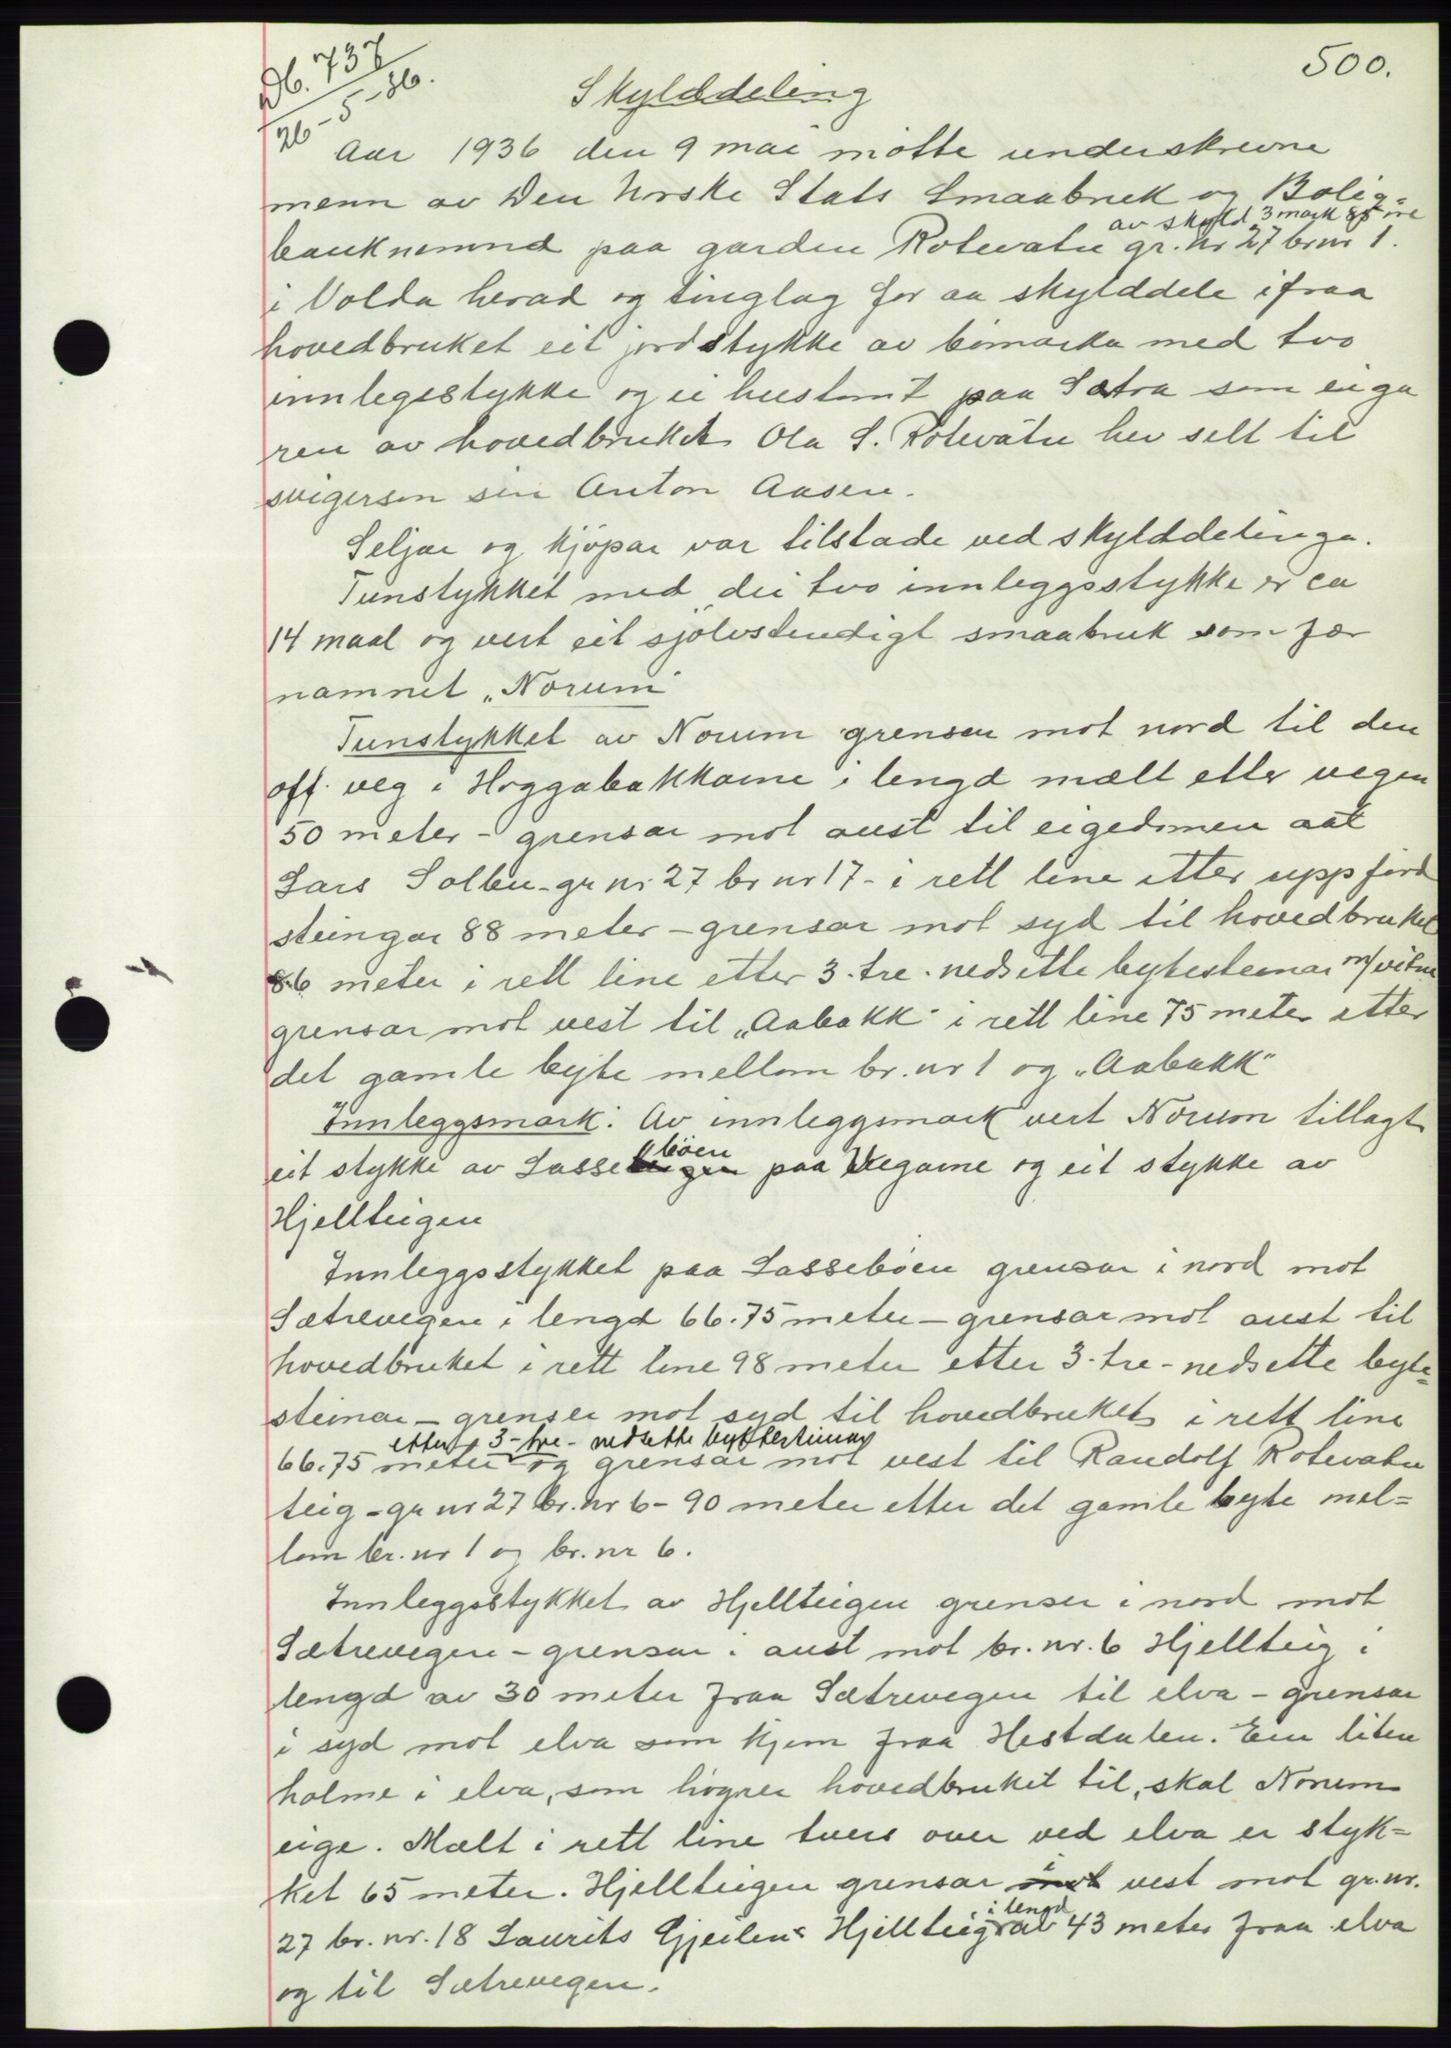 500.
Db. 737
26-5-36.
Skylddeling
Aar 1936 den 9 mai møtte underskrevne
menn av Den Norske Stats Smaabruk og Bolig=
av skyld 3 mark 85 øre
banknemnd paa garden Rotevatn gr. nr 27 br nr 1.
i Volda herad og tinglag for aa skylddele ifraa
hovedbruket eit jordstykke av bømarka med tvo
innlegsstykke og ei hustomt paa Sætra som eiga
ren av hovedbruket Ola S. Rotevatn hev selt til
svigerson sin Anton Aasen.
Seljar og kjøpar var tilstade ved skylddelinga.
Tunstykket med dei tvo innleggsstykke er ca
14 maal og vert eit sjølvstendigt smaabruk som fær
namnet „Norum"
Tunstykket av Norum grensar mot nord til den
off. veg i Hoggabakkane i lengd mælt etter vegen
50 meter - grensar mot aust til eigedomen aat
Lars Solbu - gr nr 27 br nr 17 - i rett line etter uppførd
steingar 88 meter - grensar mot syd til hovedbruket
86 meter i rett line etter 3-tre-nedsette bytesteinar m/vitne
grensar mot vest til „Aabakk" i rett line 75 meter etter
det gamle byte mellom br. nr 1 og „Aabakk"
Innleggsmark: Av innleggsmark vert Norum tillagt
bøen
eit stykke av Lasseteigen paa Vegane og eit stykke av
Hjellteigen
Innleggsstykket paa Lassebøen grensar i nord mot
Sætrevegen i lengd 66.75 meter - grensar mot aust til
hovedbruket i rett line 98 meter etter 3-tre-nedsette byte=
steinar - grenser mot syd til hovedbruket i rett line
etter 3-tre- nedsette byttesteinar
66.75 meter og grensar mot vest til Randolf Rotevatn
teig - gr nr 27 br. nr 6 - 90 meter etter det gamle byte mel=
lom br. nr 1 og br. nr 6.
Innleggsstykket av Hjellteigen grenser i nord mot
Sætrevegen - grensar i aust mot br. nr. 6 Hjellteig i
lengd av 30 meter fraa Sætrevegen til elva - grensar
i syd mot elva som kjem fraa Hestdalen. Ein liten
holme i elva, som høyrer hovedbruket til, skal Norum
eige. Mælt i rett line tvers over ved elva er styk=
i
ket 65 meter. Hjellteigen grensar mot vest mot gr. nr.
i lengd
27 br. nr. 18 Laurits Gjeilens Hjellteig av 43 meter fraa elva
og til Sætrevegen.